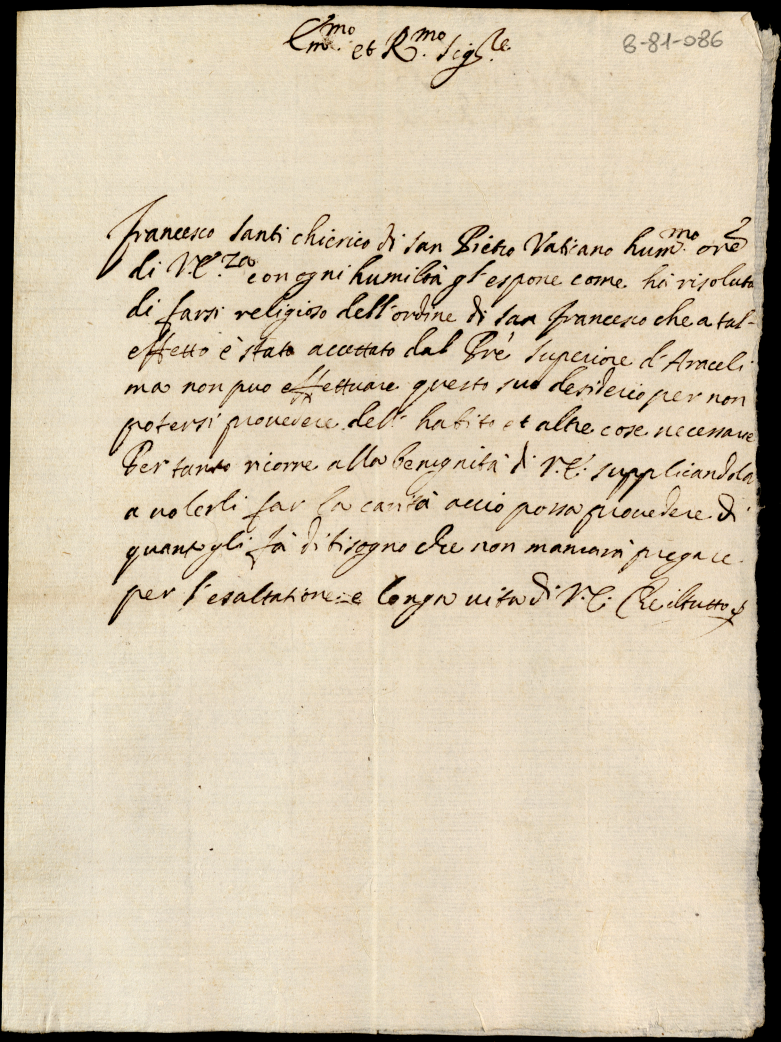 Em.mo et R.mo Sig.re
8-81-086
Francesco Santi chierico di San Pietro Vaticano hum.mo ore
di V.E.za con ogni humiltà gl'espone come hà risoluto
di farsi religioso dell'ordine di San Francesco che a tal-
effetto è stato accettato dal Pre' Superiore d'Araceli
ma non puo effettuare questo suo desiderio per non
potersi provedere dell' habito et altre cose necessarie
Per tanto ricorre alla benignità di V.E. supplicandola
a volerli far la carità acciò possa provedere di
quanto gli fà di bisogno che non mancarà pregare
per l'esaltatione e longa vita di V.E. Che il tutto